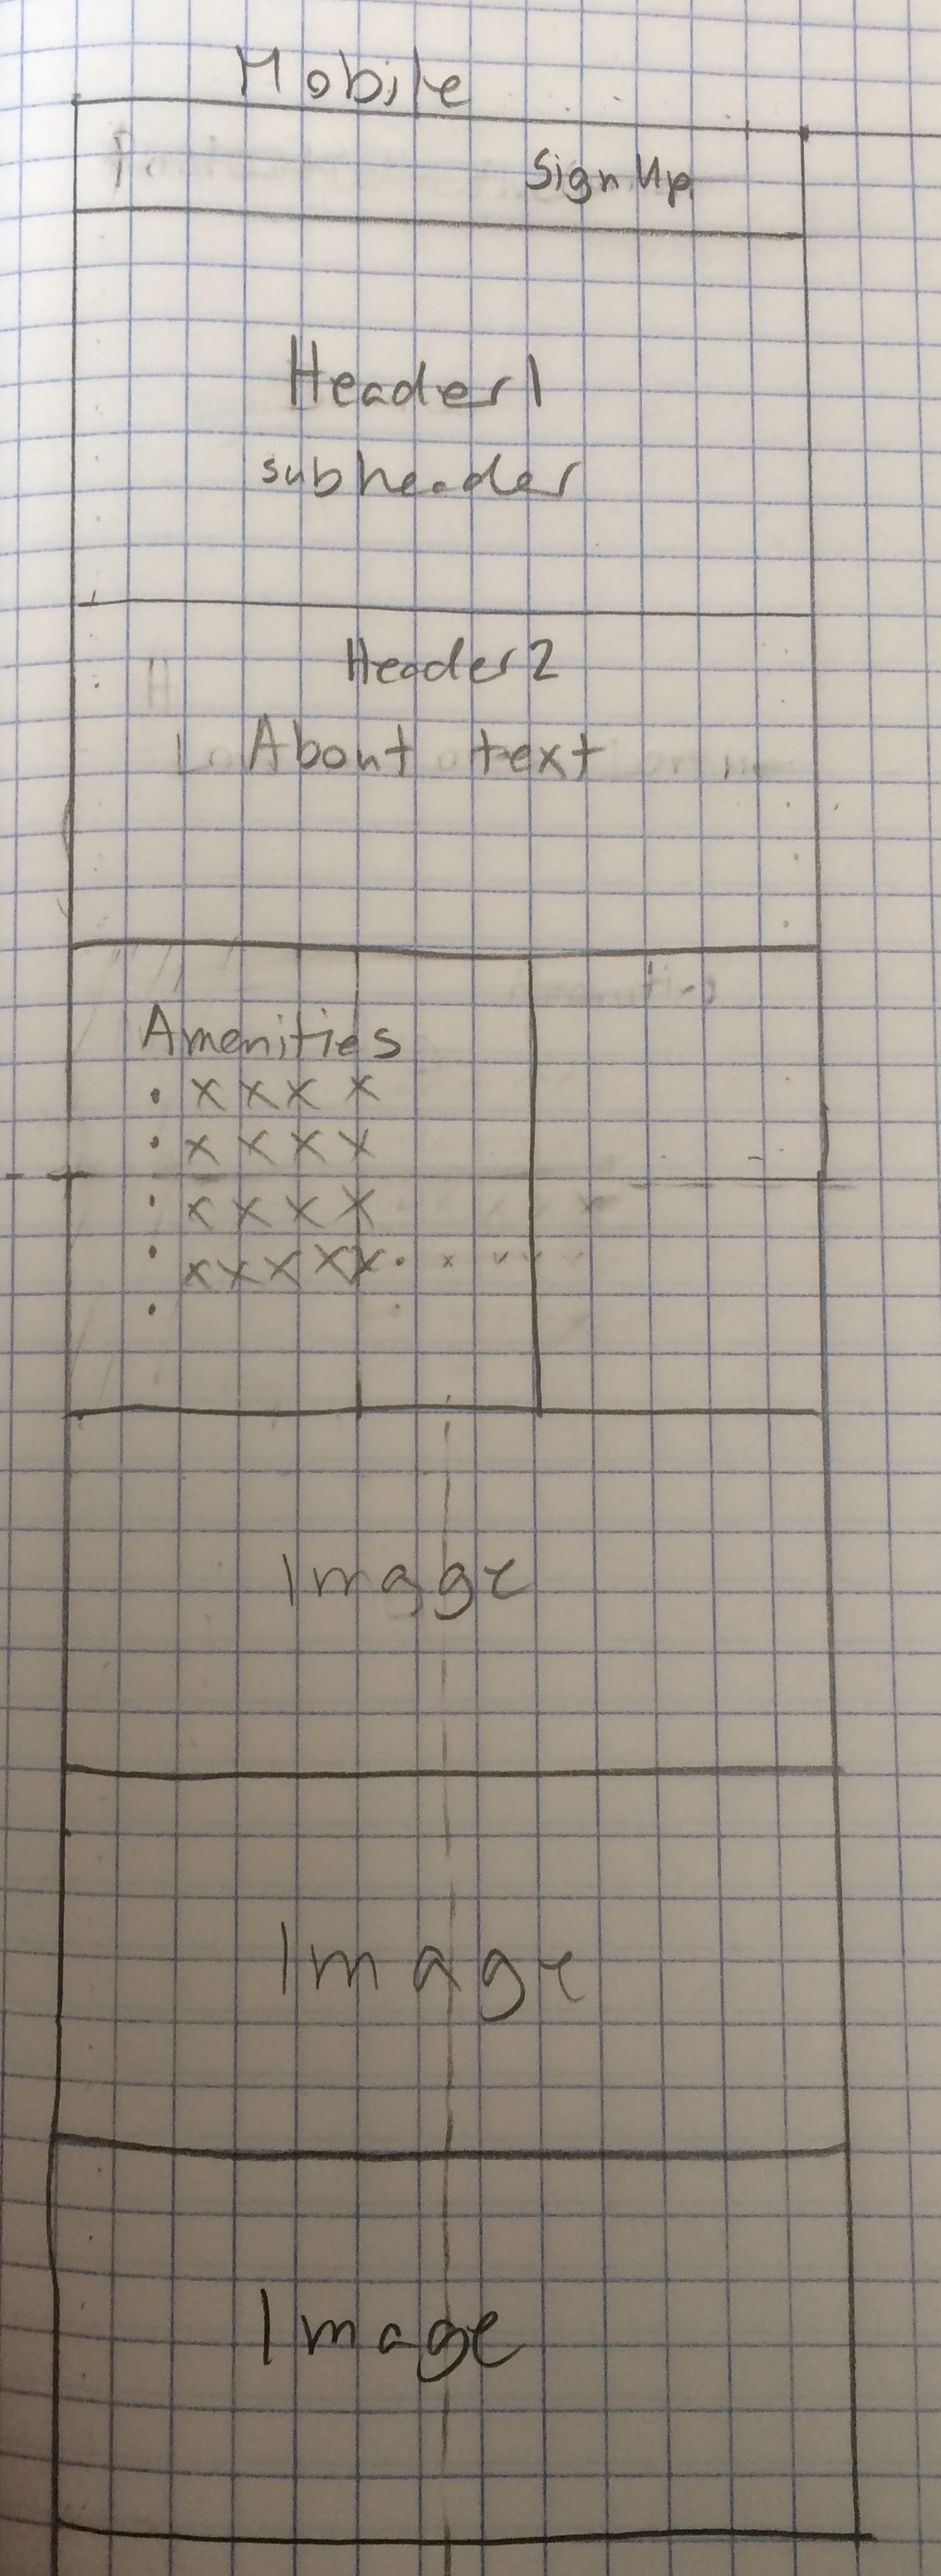 Mobile
Sign Up
Header 1
subheader
Header 2
About text
Amenities
• x x x x
• x x x x
• x x x x
• x x x x x
•
Image
Image
Image